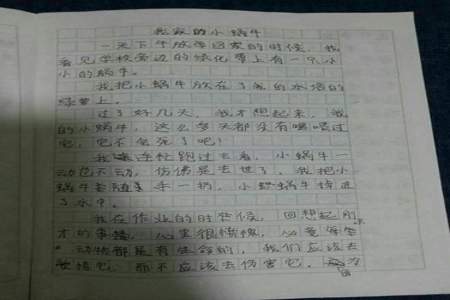 我家的小蜗牛
一天下午放学回家的时候，我
看见学校旁边的绿化带上有一个小
小的蜗牛。
我把小蜗牛放在了我的水培的
绿萝上。
过了好几天，我才想起来，我
的小蜗牛，这么多天都没有喂喂过
它，它不会死了吧！
我连忙跑过去看，小蜗牛一
动也不动，仿佛是去世了，我把小
蜗牛随手一扔，小蜗牛掉进
了水中。
我在作业的时候，回想起刚
才的事，心里很
动物都是有生命的，我们应该去
它，而不应该去伤害它。